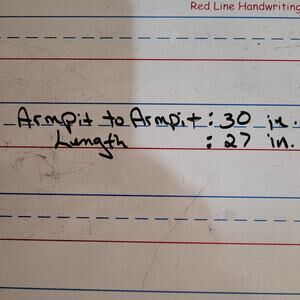 Red Line Handwriting
Armpit to Armpit : 30 in.
Length : 27 in.